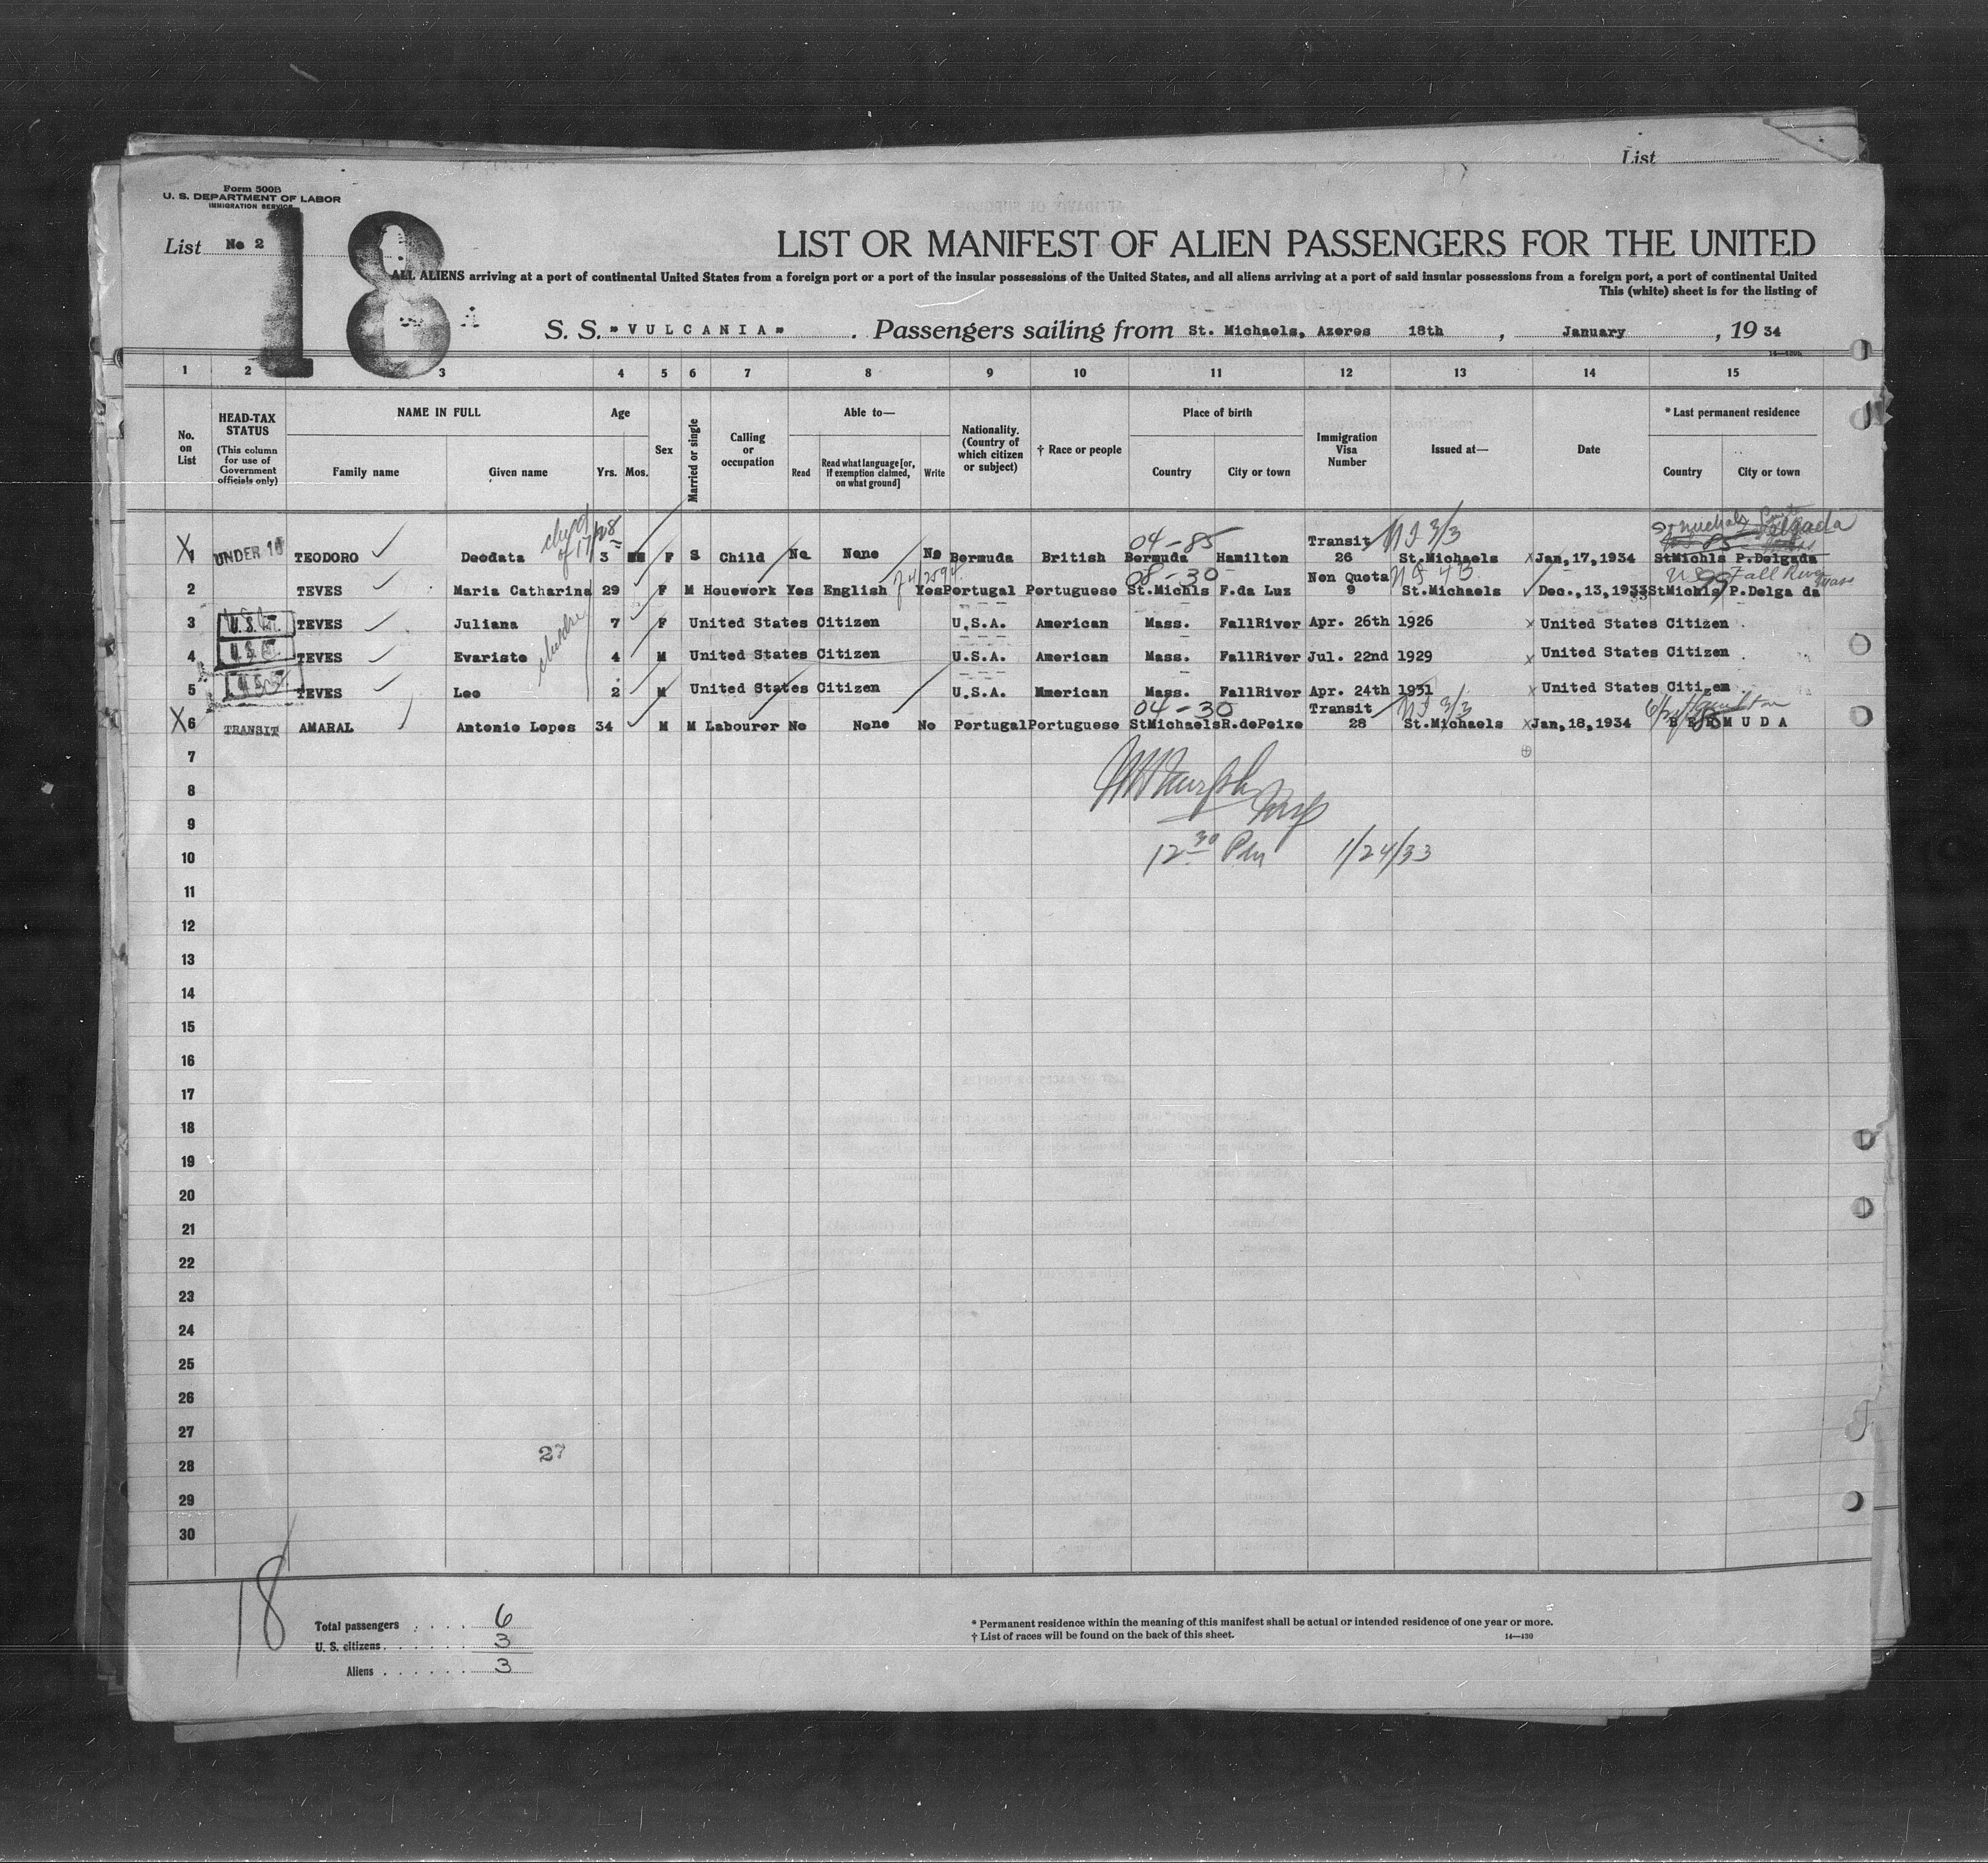 List
Form 500B
U. S. DEPARTMENT OF LABOR
IMMIGRATION SERVICE
List No 2
18
LIST OR MANIFEST OF ALIEN PASSENGERS FOR THE UNITED
ALL ALIENS arriving at a port of continental United States from a foreign port or a port of the insular possessions of the United States, and all aliens arriving at a port of said insular possessions from a foreign port, a port of continental United
This (white) sheet is for the listing of
S. S. "VULCANIA". Passengers sailing from St. Michaels, Azores 18th, January, 19 34
1 2 3 4 5 6 7 8 9 10 11 12 13 14 15
No. on List
HEAD-TAX STATUS (This column for use of Government officials only)
NAME IN FULL
Family name Given name
Age
Yrs. Mos.
Sex
Married or single
Calling or occupation
Able to—
Read Read what language [or, if exemption claimed, on what ground] Write
Nationality. (Country of which citizen or subject)
† Race or people
Place of birth
Country City or town
Immigration Visa Number
Issued at—
Date
* Last permanent residence
Country City or town
X 1 UNDER 16 TEODORO Deodata 3 F S Child No None No Bermuda British 04-85 Bermuda Hamilton Transit 26 3/3 St.Michaels Jan,17,1934 StMichls P.Delgada
2 TEVES Maria Catharina 29 F M Housework Yes English Yes Portugal Portuguese 08-30 St.Michls F.da Luz Non Quota 9 St.Michaels Dec.,13,1933 StMichls P.Delga da Fall River Mass
3 U.S. TEVES Juliana 7 F United States Citizen U.S.A. American Mass. FallRiver Apr. 26th 1926 United States Citizen
4 U.S. TEVES Evariste 4 M United States Citizen U.S.A. American Mass. FallRiver Jul. 22nd 1929 United States Citizen
5 TEVES Leo 2 M United States Citizen U.S.A. American Mass. FallRiver Apr. 24th 1931 United States Citizen
X 6 TRANSIT AMARAL Antonio Lopes 34 M M Labourer No None No Portugal Portuguese 04-30 StMichaels R.dePeixe Transit 28 3/3 St.Michaels Jan,18,1934 BERMUDA
7
8
9
10 12 30 Pm 1/24/33
11
12
13
14
15
16
17
18
19
20
21
22
23
24
25
26
27
27
28
29
30
18
Total passengers 6
U. S. citizens 3
Aliens 3
* Permanent residence within the meaning of this manifest shall be actual or intended residence of one year or more.
† List of races will be found on the back of this sheet. 14—430